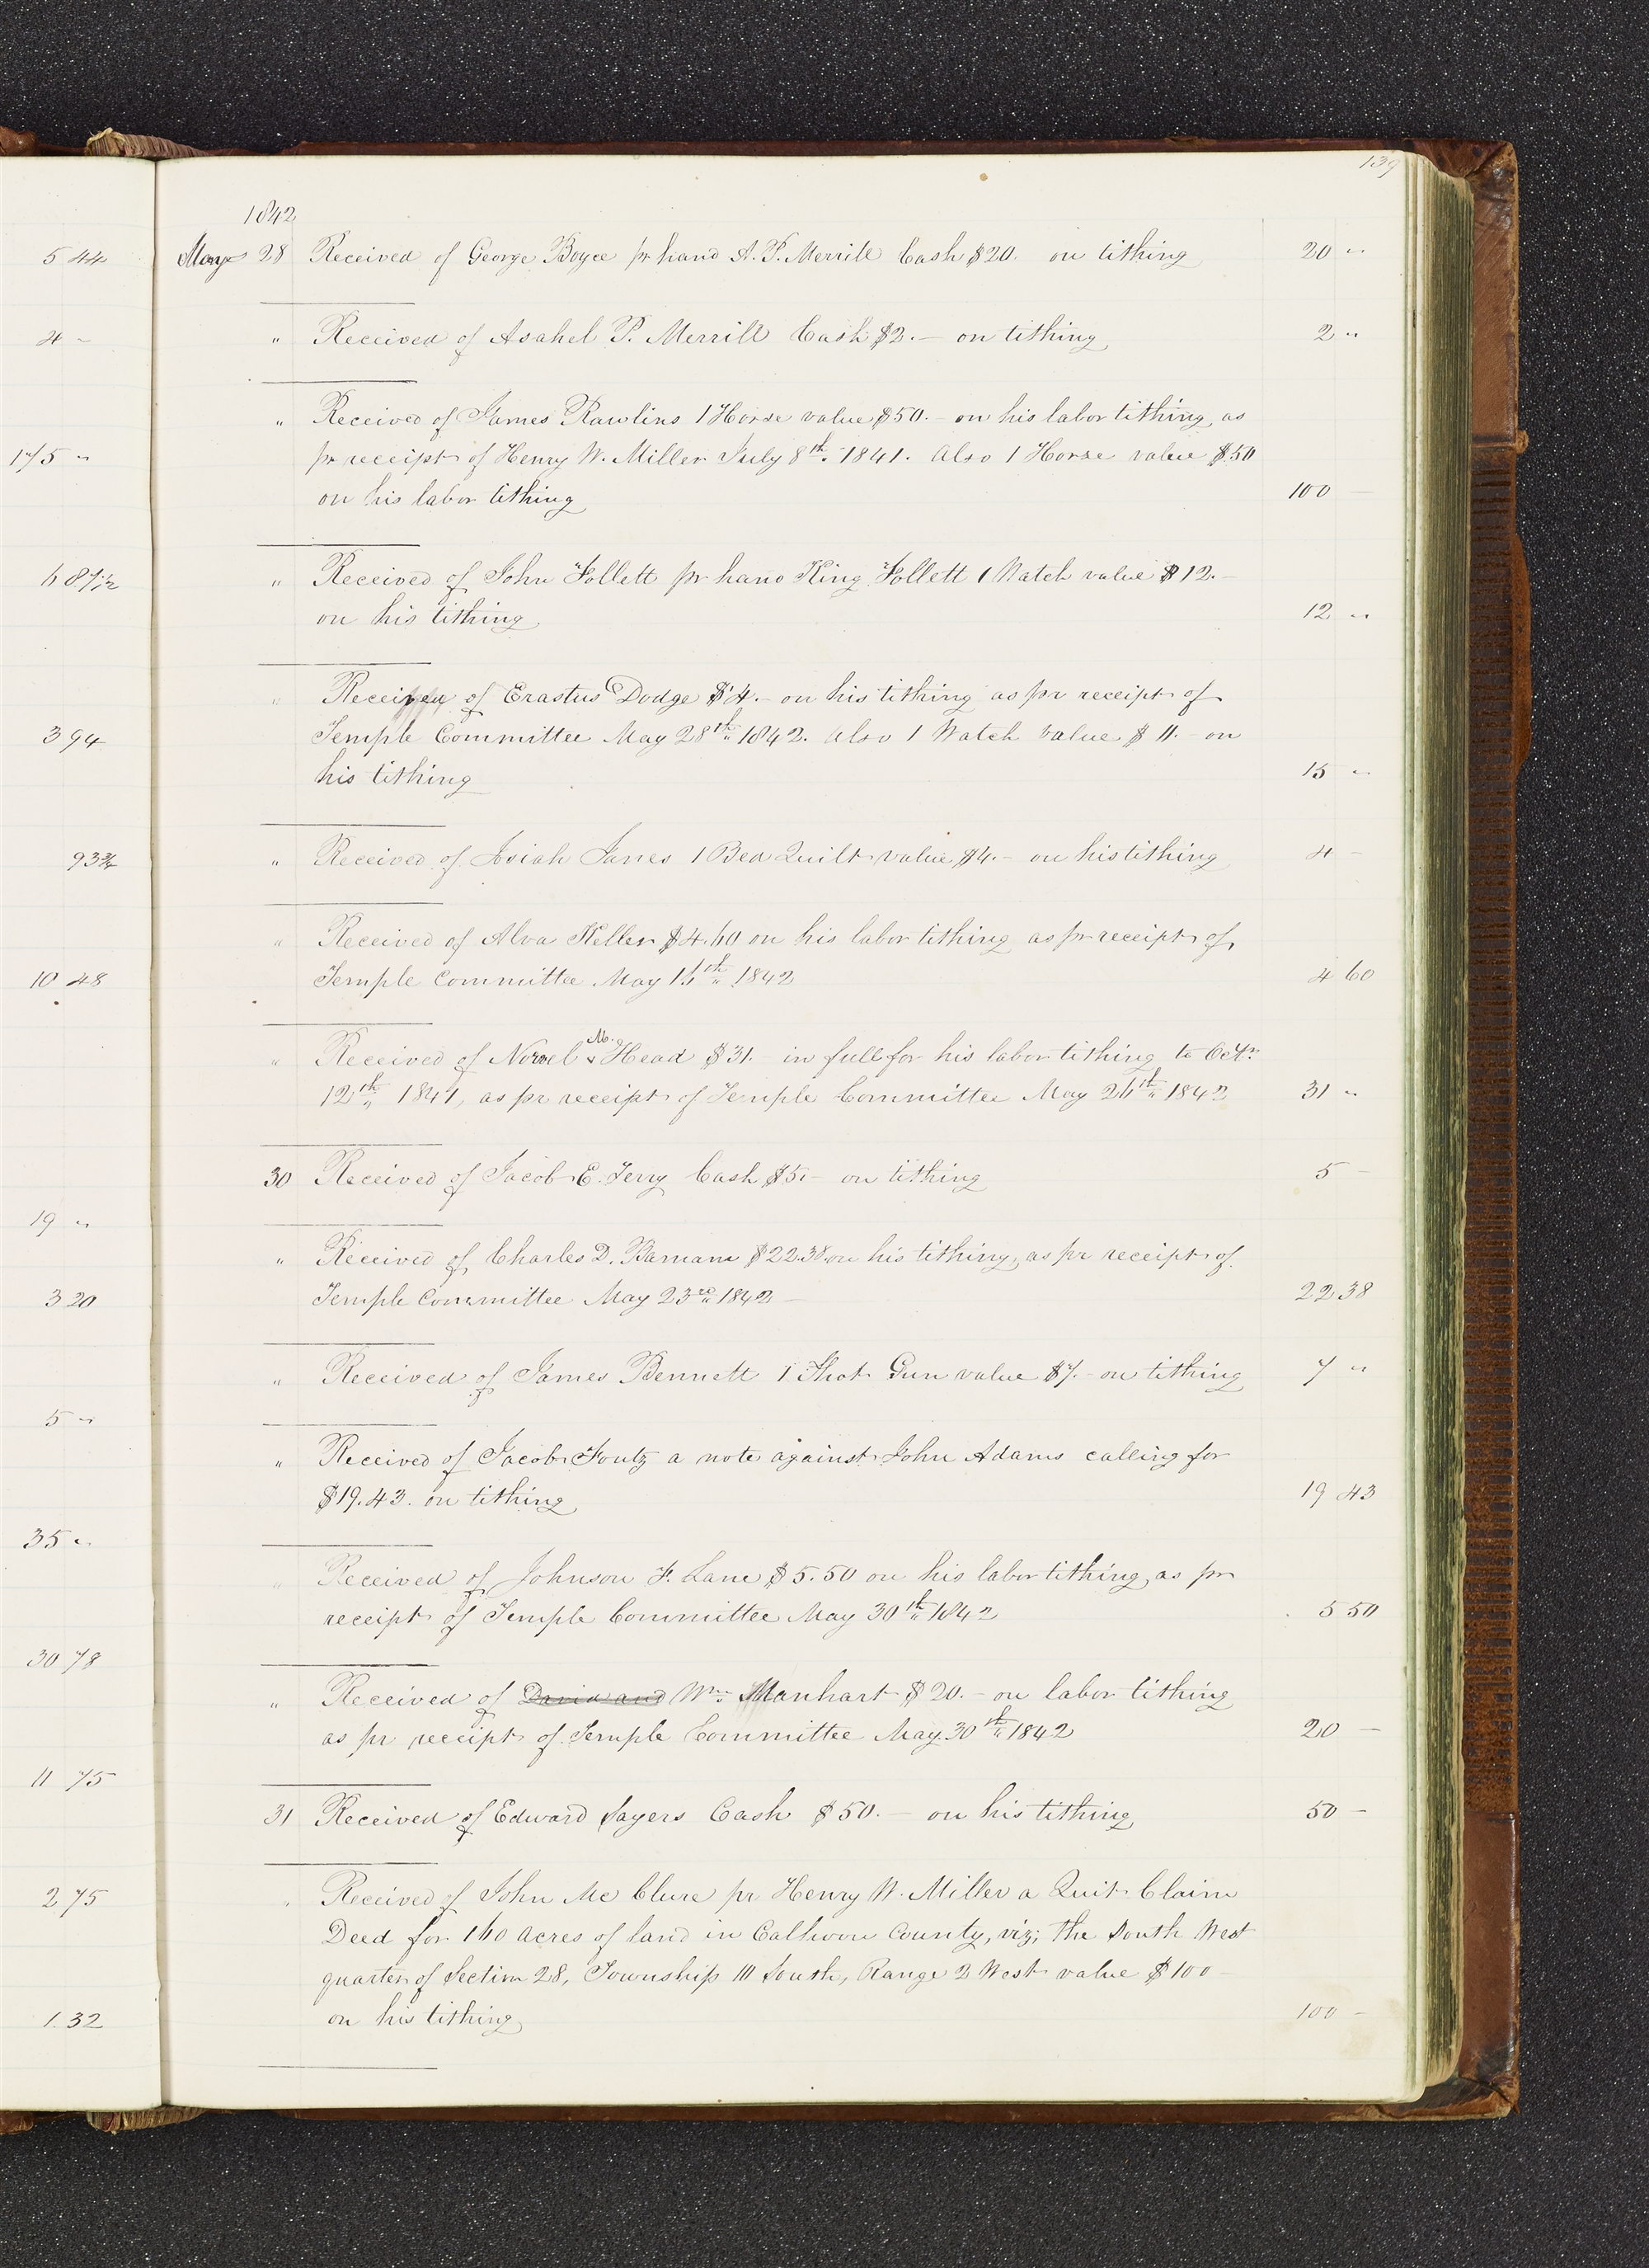 139
1842
May 28 Received of George Boyce pr hand A. P. Merrill Cash $20. on tithing 20 "
" Received of Asahel P. Merrill Cash $2.— on tithing 2 "
" Received of James Rawlins 1 Horse value $50.— on his labor tithing, as
pr receipt of Henry W. Miller July 8th 1841. Also 1 Horse value $50
on his labor tithing 100 —
" Received of John Follett pr hand King Follett 1 Watch value $12.—
on his tithing 12 "
" Received of Erastus Dodge $4.— on his tithing as pr receipt of
Temple Committee May 28th 1842. Also 1 Watch value $11.— on
his tithing 15 "
" Received of Josiah Janes 1 Bed Quilt value $4.— on his tithing 4 —
" Received of Alva Keller $4.60 on his labor tithing as pr receipt of
Temple Committee May 1842 4 60
" Received of Norvel M. Head $31.— in full for his labor tithing to Octr
12th 1841, as pr receipt of Temple Committee May 26th 1842 31 "
30 Received of Jacob E. Terry Cash $5.— on tithing 5 —
" Received of Charles D. Barnam $22.38 on his tithing, as pr receipt of
Temple Committee May 23rd 1842 — 22 38
" Received of James Bennett 1 Shot Gun value $7.— on tithing 7 "
" Received of Jacob Foutz a note against John Adams calling for
$19.43. on tithing 19 43
" Received of Johnson F. Lane $5.50 on his labor tithing, as pr
receipt of Temple Committee May 30th 1842 5 50
" Received of David and Wm Manhart $20.— on labor tithing
as pr receipt of Temple Committee May 30th 1842 20 —
31 Received of Edward Sayers Cash $50.— on his tithing 50 —
" Received of John Mc Clure pr Henry W. Miller a Quit Claim
Deed for 160 acres of land in Calhoun County, viz; the South West
quarter of Section 28, Township 10 South, Range 2 West value $100 —
on his tithing 100 —
5 44
4 —
175 "
6 87½
3 94
93¾
10 48
19 "
3 20
5 "
35 "
30 78
11 75
2 75
1.32